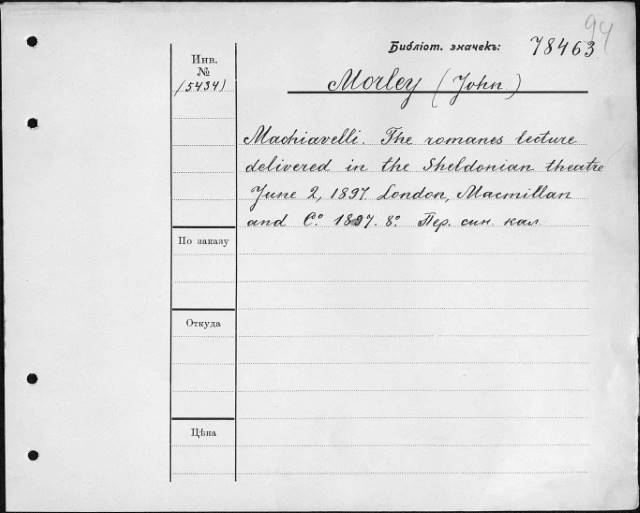 94
Библіот. значекъ: 78463
Инв.
№
(5434)
Morley (John)
Machiavelli. The romanes lecture
delivered in the Sheldonian theatre
June 2, 1897. London, Macmillan
and Cº 1897. 8º. Пер. син. кал.
По заказу
Откуда
Цѣна